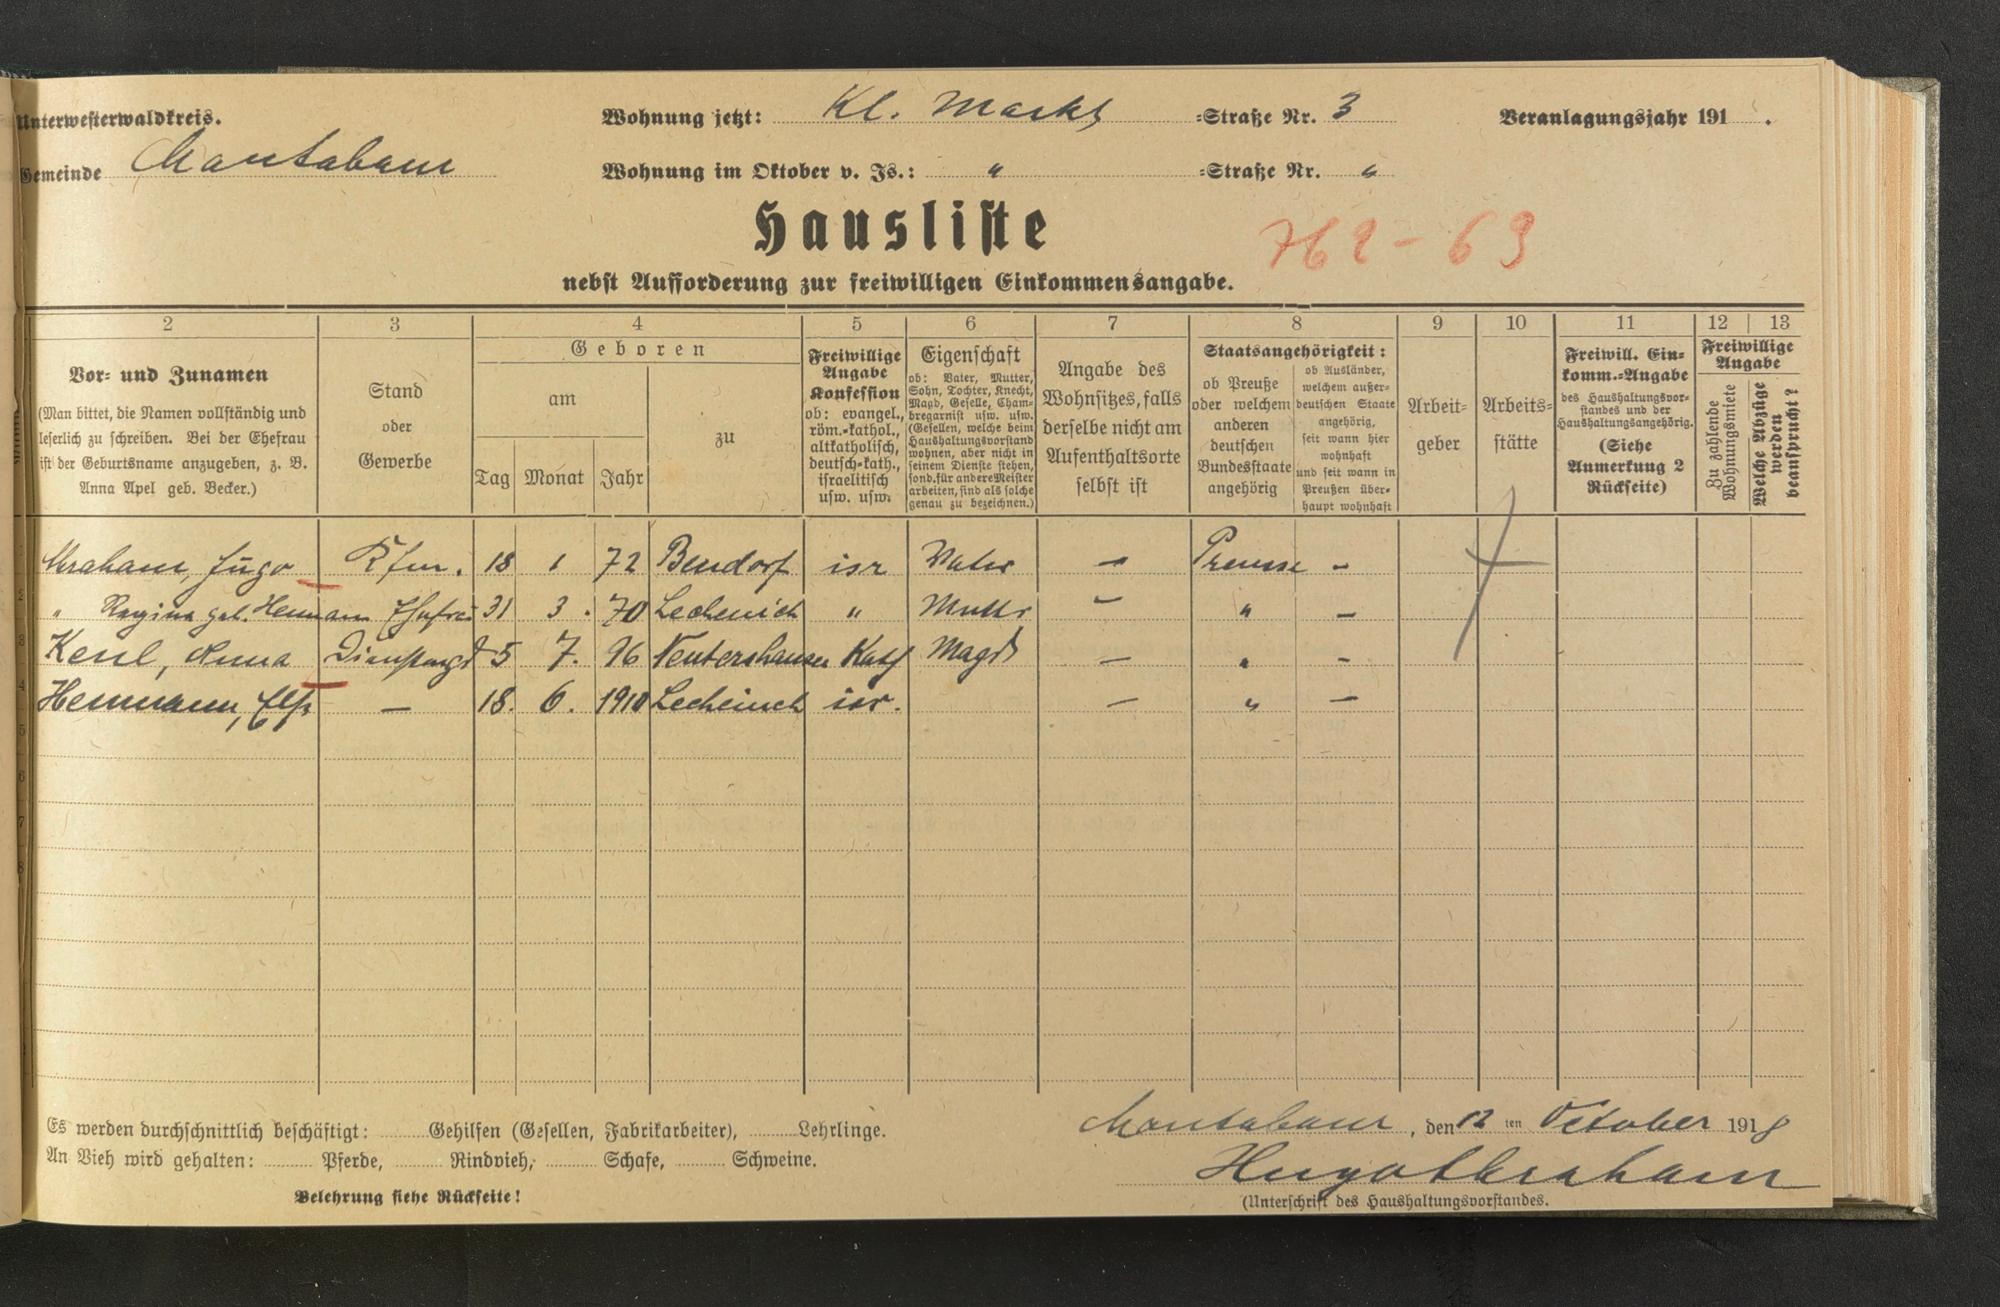 Unterwesterwaldkreis.
Gemeinde Montabaur
Wohnung jetzt: Kl. Markt =Straße Nr. 3
Wohnung im Oktober v. Js.: " =Straße Nr. "
Veranlagungsjahr 191 .
Hausliste
762-63
nebst Aufforderung zur freiwilligen Einkommensangabe.
2 3 4 5 6 7 8 9 10 11 12 13
Vor= und Zunamen
(Man bittet, die Namen vollständig und
leserlich zu schreiben. Bei der Ehefrau
ist der Geburtsname anzugeben, z. B.
Anna Apel geb. Becker.)
Stand
oder
Gewerbe
Geboren
am
Tag Monat Jahr
zu
Freiwillige
Angabe
Konfession
ob: evangel.,
röm.=kathol.,
altkatholisch,
deutsch=kath.,
israelitisch
usw. usw.
Eigenschaft
ob: Vater, Mutter,
Sohn, Tochter, Knecht,
Magd, Geselle, Cham=
bregarnist usw. usw.
(Gesellen, welche beim
Haushaltungsvorstand
wohnen, aber nicht in
seinem Dienste stehen,
sond. für andere Meister
arbeiten, sind als solche
genau zu bezeichnen.)
Angabe des
Wohnsitzes, falls
derselbe nicht am
Aufenthaltsorte
selbst ist
Staatsangehörigkeit:
ob Preuße
oder welchem
anderen
deutschen
Bundesstaate
angehörig
ob Ausländer,
welchem außer=
deutschen Staate
angehörig,
seit wann hier
wohnhaft
und seit wann in
Preußen über=
haupt wohnhaft
Arbeit=
geber
Arbeits=
stätte
Freiwill. Ein=
komm.=Angabe
des Haushaltungsvor=
standes und der
Haushaltungsangehörig.
(Siehe
Anmerkung 2
Rückseite)
Freiwillige
Angabe
Zu zahlende
Wohnungsmiete
Welche Abzüge
werden
beansprucht?
1 Abraham, Hugo Kfm. 18 1 72 Bendorf isr Vater — Preusse —
2 " Regina geb. Hermann Ehefrau 31 3. 70 Lechenich " Mutter — " —
3 Keul, Anna Dienstmagd 5 7. 96 Nentershausen Kath Magd — " —
4 Hermann, Else — 18. 6. 1910 Lechenich isr. — " —
5
6
7
8
Es werden durchschnittlich beschäftigt: Gehilfen (Gesellen, Fabrikarbeiter), Lehrlinge.
An Vieh wird gehalten: Pferde, Rindvieh, Schafe, Schweine.
Belehrung siehe Rückseite!
Montabaur, den 12 ten October 1918
Hugo Abraham
(Unterschrift des Haushaltungsvorstandes.